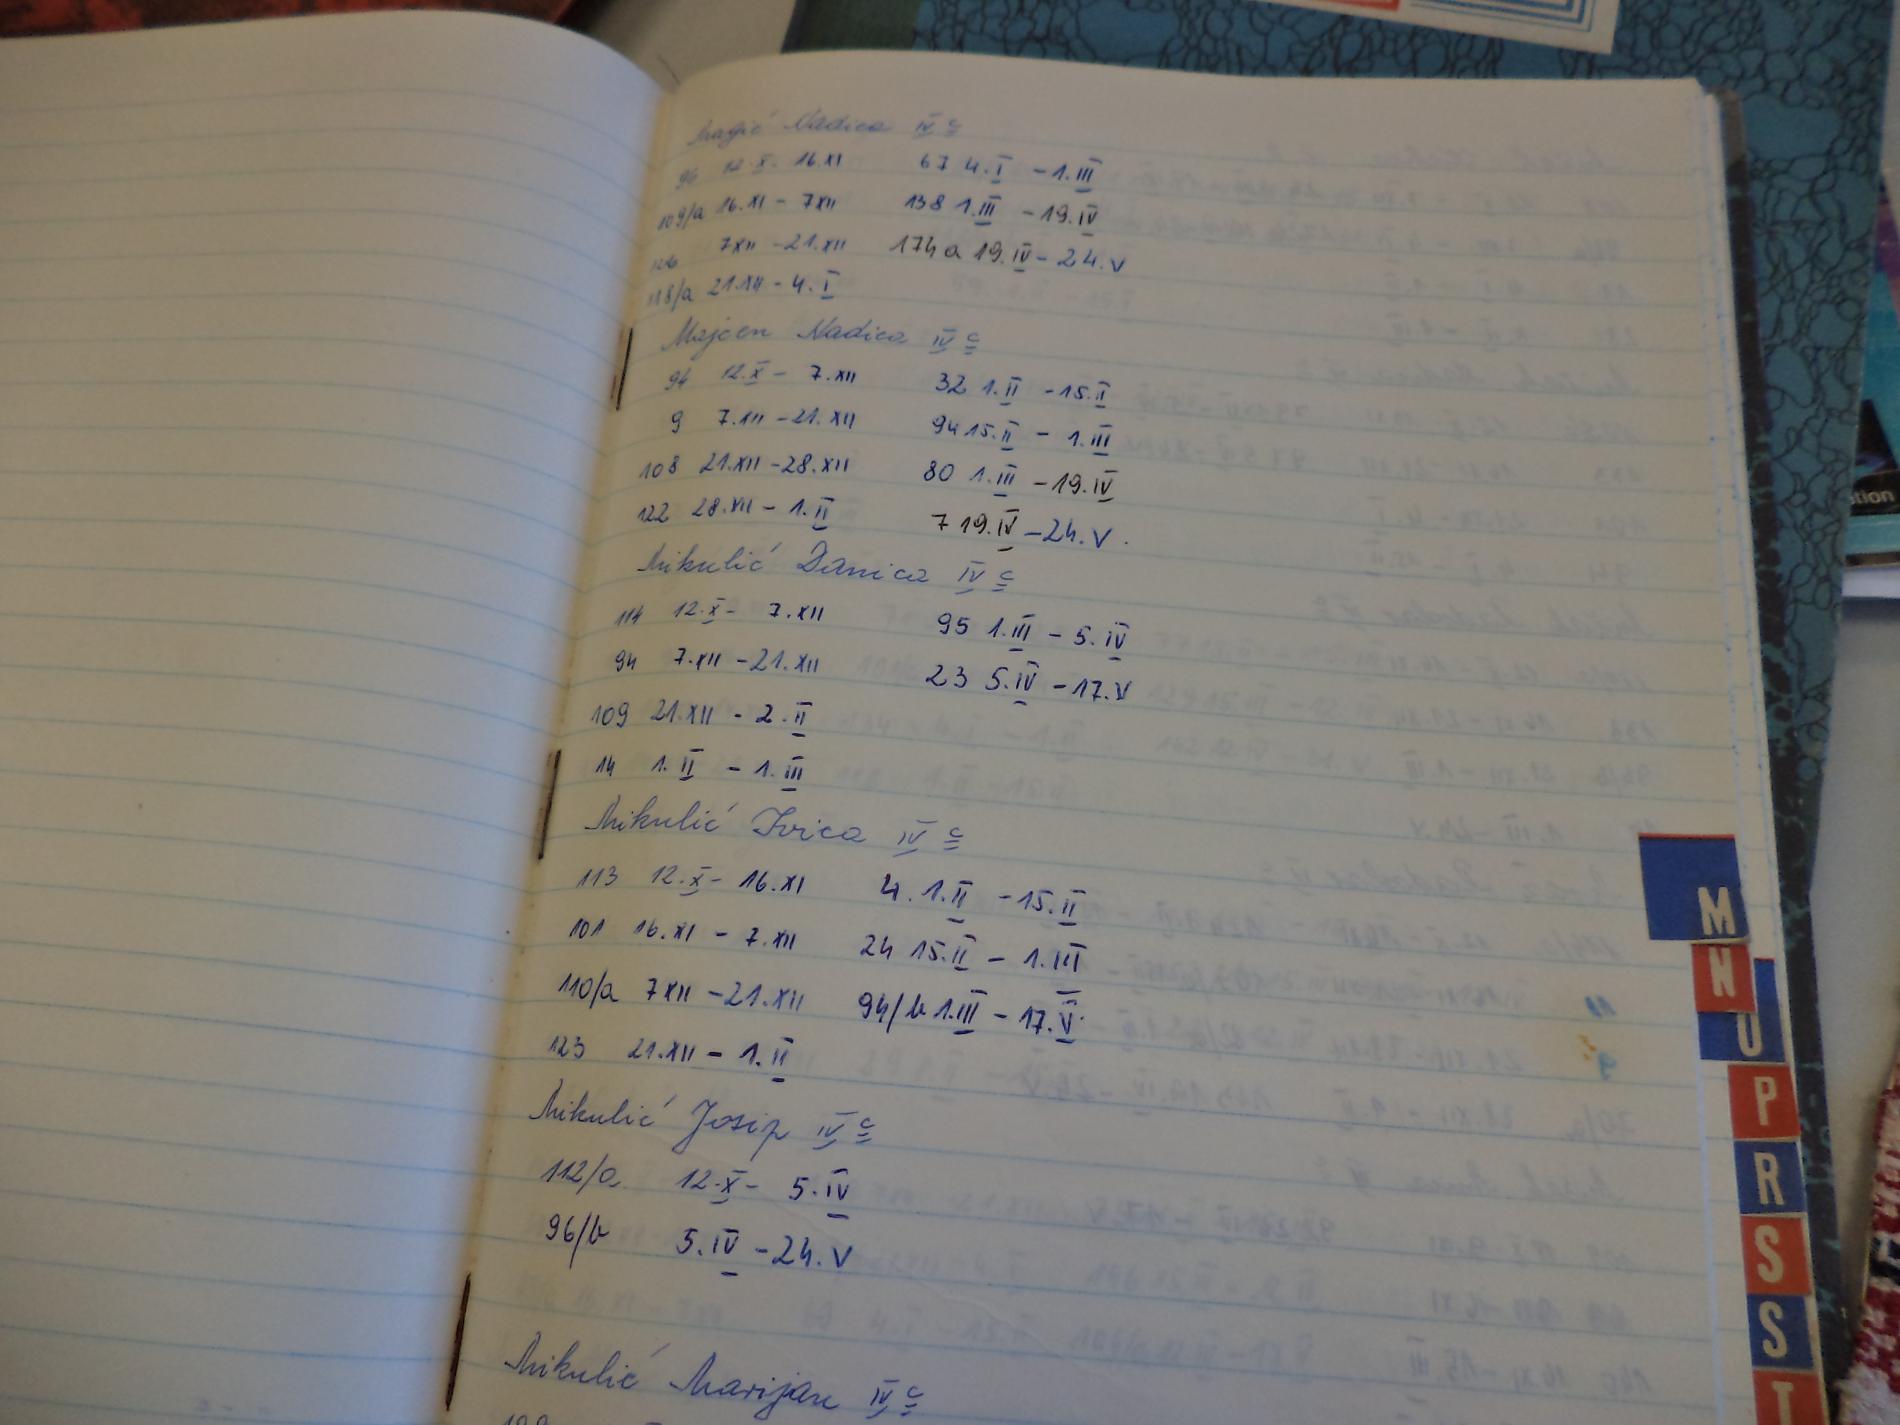 Magić Nadica IV c
96 12.X - 16.XI 67 4.I - 1.III
109/a 16.XI - 7XII 138 1.III - 19.IV
126 7XII - 21.XII 174a 19.IV - 24.V
118/a 21.XII - 4.I
Majcen Nadica IV c
94 12.X - 7.XII 32 1.II - 15.II
9 7.XII - 21.XII 94 15.II - 1.III
108 21.XII - 28.XII 80 1.III - 19.IV
122 28.XII - 1.II 7 19.IV - 24.V.
Mikulić Danica IV c
114 12.X - 7.XII 95 1.III - 5.IV
94 7.XII - 21.XII 23 5.IV - 17.V
109 21.XII - 2.II
14 1.II - 1.III
Mikulić Ivica IV c
113 12.X - 16.XI 4. 1.II - 15.II
101 16.XI - 7.XII 24 15.II - 1.III
110/a 7XII - 21.XII 94/b 1.III - 17.V
123 21.XII - 1.II
Mikulić Josip IV c
112/a 12.X - 5.IV
96/b 5.IV - 24.V
Mikulić Marijan IV c
M
N
U
P
R
S
S
T
tion